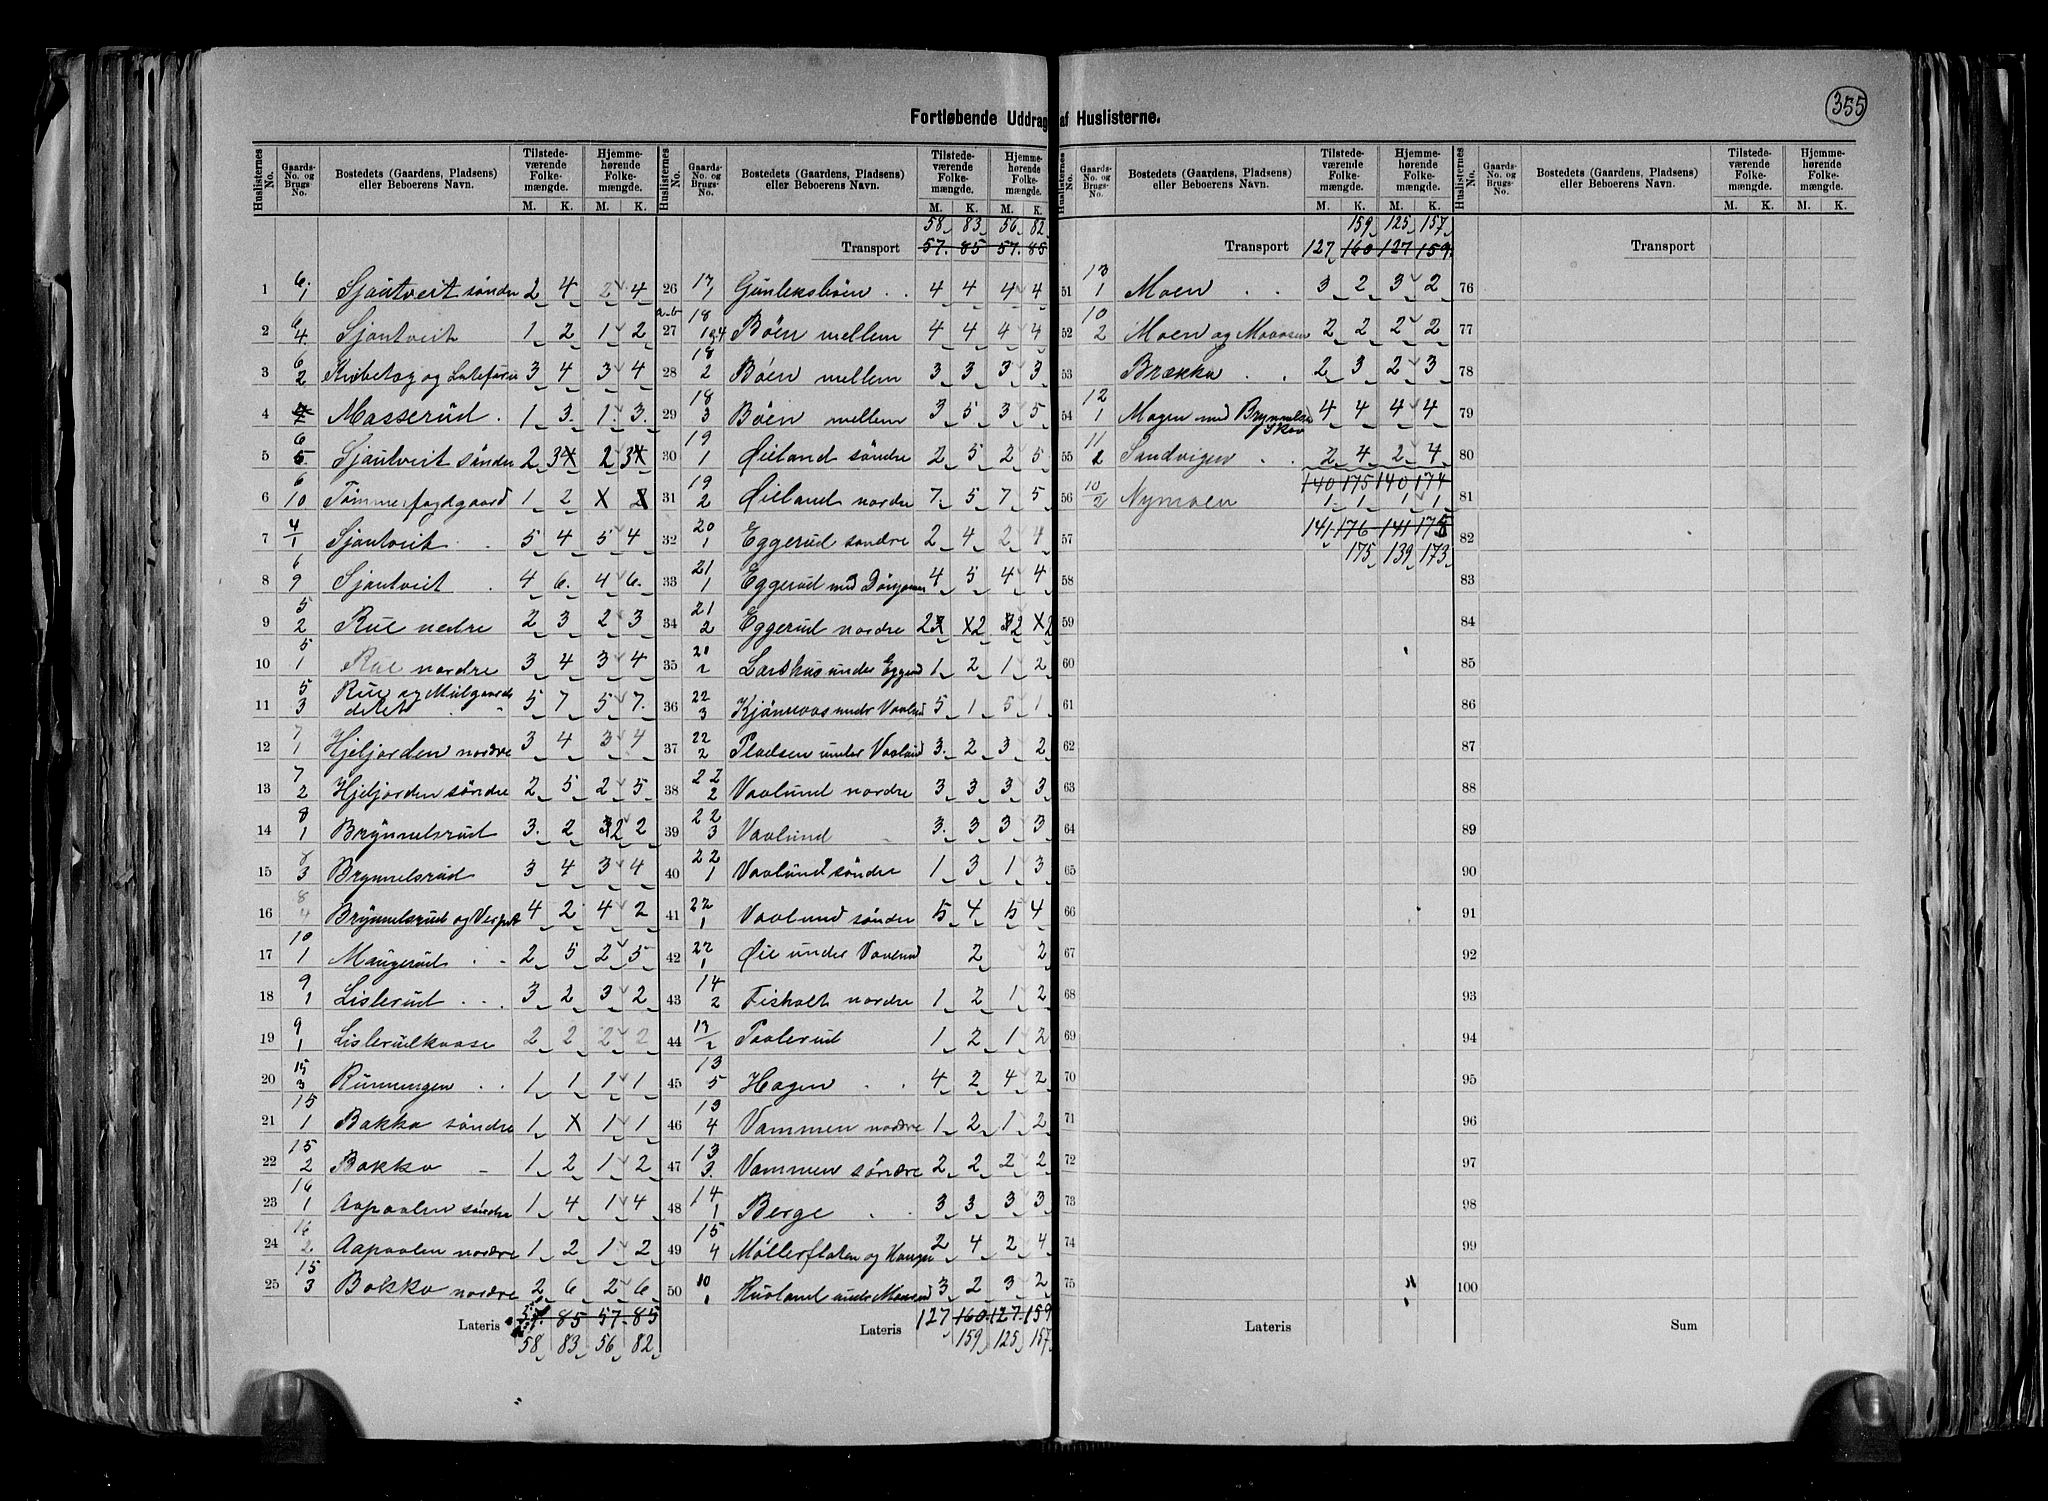 355
Fortløbende Uddrag af Huslisterne.
Huslisternes No. Gaards-No. og Brugs-No. Bostedets (Gaardens, Pladsens) eller Beboerens Navn. Tilstedeværende Folkemængde. M. K. Hjemmehørende Folkemængde. M. K.
1 6/1 Sjautveit søndre 2 4 2 4
2 6/4 Sjautveit 1 2 1 2
3 6/2 3 4 3 4
4 Masserud 1 3 1 3
5 6/5 Sjautveit søndre 2 3 2 3
6 6/10 Tømmerfogdgaard 1 2 X
7 4/1 Sjautveit 5 4 5 4
8 6/9 Sjautveit 4 6 4 6
9 5/2 Rue nedre 2 3 2 3
10 5/1 Rue nordre 3 4 3 4
11 5/3 Rue og Mulgaards
delet 5 7 5 7
12 7/1 Hjeljorden nordre 3 4 3 4
13 7/2 Hjeljorden søndre 2 5 2 5
14 8/1 Brynnelsrud 3 2 2 2
15 8/3 Brynnelsrud 3 4 3 4
16 8/4 Brynnelsrud og 4 2 4 2
17 10/1 Maugerud 2 5 2 5
18 9/1 Lislerud 3 2 3 2
19 9/1 Lislerudkaase 2 2 2 2
20 15/3 Runningen 1 1 1 1
21 15/1 Bakka søndre 1 X 1 1
22 15/2 Bakka 1 2 1 2
23 16/1 Aapaalen søndre 1 4 1 4
24 16/2 Aapaalen nordre 1 2 1 2
25 15/3 Bakka nordre 2 6 2 6
Lateris 57 85 57 85
58 83 56 82
58 83 56 82
Transport 57 85 57 85
26 17/1 Gunleksbøen 4 4 4 4
a-b
27 18/1 2 4 Bøen mellem 4 4 4 4
28 18/2 Bøen mellem 3 3 3 3
29 18/3 Bøen mellem 3 5 3 5
30 19/1 Øiland søndre 2 5 2 5
31 19/2 Øiland nordre 7 5 7 5
32 20/1 Eggerud søndre 2 4 2 4
33 21/1 Eggerud med 4 5 4 4
34 21/2 Eggerud nordre 2 2 2 2
35 20/2 Larshus under Eggerud 1 2 1 2
36 22/3 Kjønnaas under Vaalund 5 1 5 1
37 22/2 Pladsen under Vaalund 3 2 3 2
38 22/2 Vaalund nordre 3 3 3 3
39 22/3 Vaalund 3 3 3 3
40 22/1 Vaalund søndre 1 3 1 3
41 22/1 Vaalund søndre 5 4 5 4
42 22/1 Øie under Vaalund 2 2
43 14/2 Fisholt nordre 1 2 1 2
44 17/2 Paalerud 1 2 1 2
45 13/5 Hagen 4 2 4 2
46 13/4 Vammen nordre 1 2 1 2
47 13/3 Vammen søndre 2 2 2 2
48 14/1 Berge 3 3 3 3
49 15/4 Møllerflaten og Haugen 2 4 2 4
50 10/1 Husland under 3 2 3 2
Lateris 127 160 127 159
159 125 157
Huslisternes No. Gaards-No. og Brugs-No. Bostedets (Gaardens, Pladsens) eller Beboerens Navn. Tilstedeværende Folkemængde. M. K. Hjemmehørende Folkemængde. M. K.
159 125 157
Transport 127 160 127 159
51 13/1 Moen 3 2 3 2
52 10/2 Moen og 2 2 2 2
53 Brækka 2 3 2 3
54 12/1 Mogen med 4 4 4 4
55 11/2 Sandvigen 2 4 2 4
140 175 140 174
56 10/2 Nymoen 1 1 1 1
57 141 176 141 175
175 139 173
58
59
60
61
62
63
64
65
66
67
68
69
70
71
72
73
74
75
Lateris
Transport
76
77
78
79
80
81
82
83
84
85
86
87
88
89
90
91
92
93
94
95
96
97
98
99
100
Sum